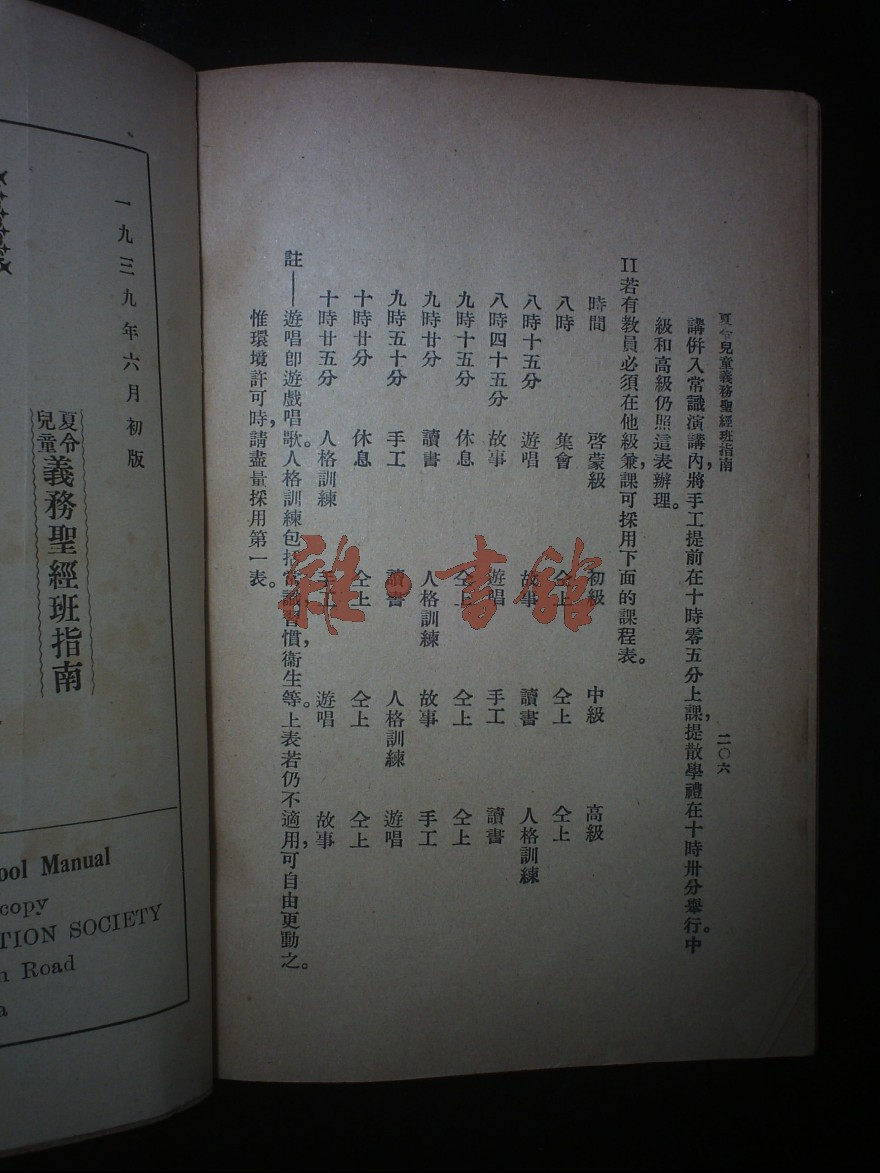 夏令兒童義務聖經班指南　二〇六
講併入常識演講內，將手工提前在十時零五分上課，提散學禮在十時卅分舉行。中
級和高級仍照這表辦理。
II若有教員必須在他級兼課可採用下面的課程表。
時間　啓蒙級　初級　中級　高級
八時　集會　仝上　仝上　仝上
八時十五分　遊唱　故事　讀書　人格訓練
八時四十五分　故事　遊唱　手工　讀書
九時十五分　休息　仝上　仝上　仝上
九時廿分　讀書　人格訓練　故事　手工
九時五十分　手工　讀書　人格訓練　遊唱
十時廿分　休息　仝上　仝上　仝上
十時廿五分　人格訓練　手工　遊唱　故事
註——遊唱卽遊戲唱歌。人格訓練包括常識，習慣，衞生等。上表若仍不適用，可自由更動之。
惟環境許可時，請盡量採用第一表。
雜·書館
一九三九年六月初版
夏令兒童義務聖經班指南
ool Manual
copy
TION SOCIETY
n Road
a